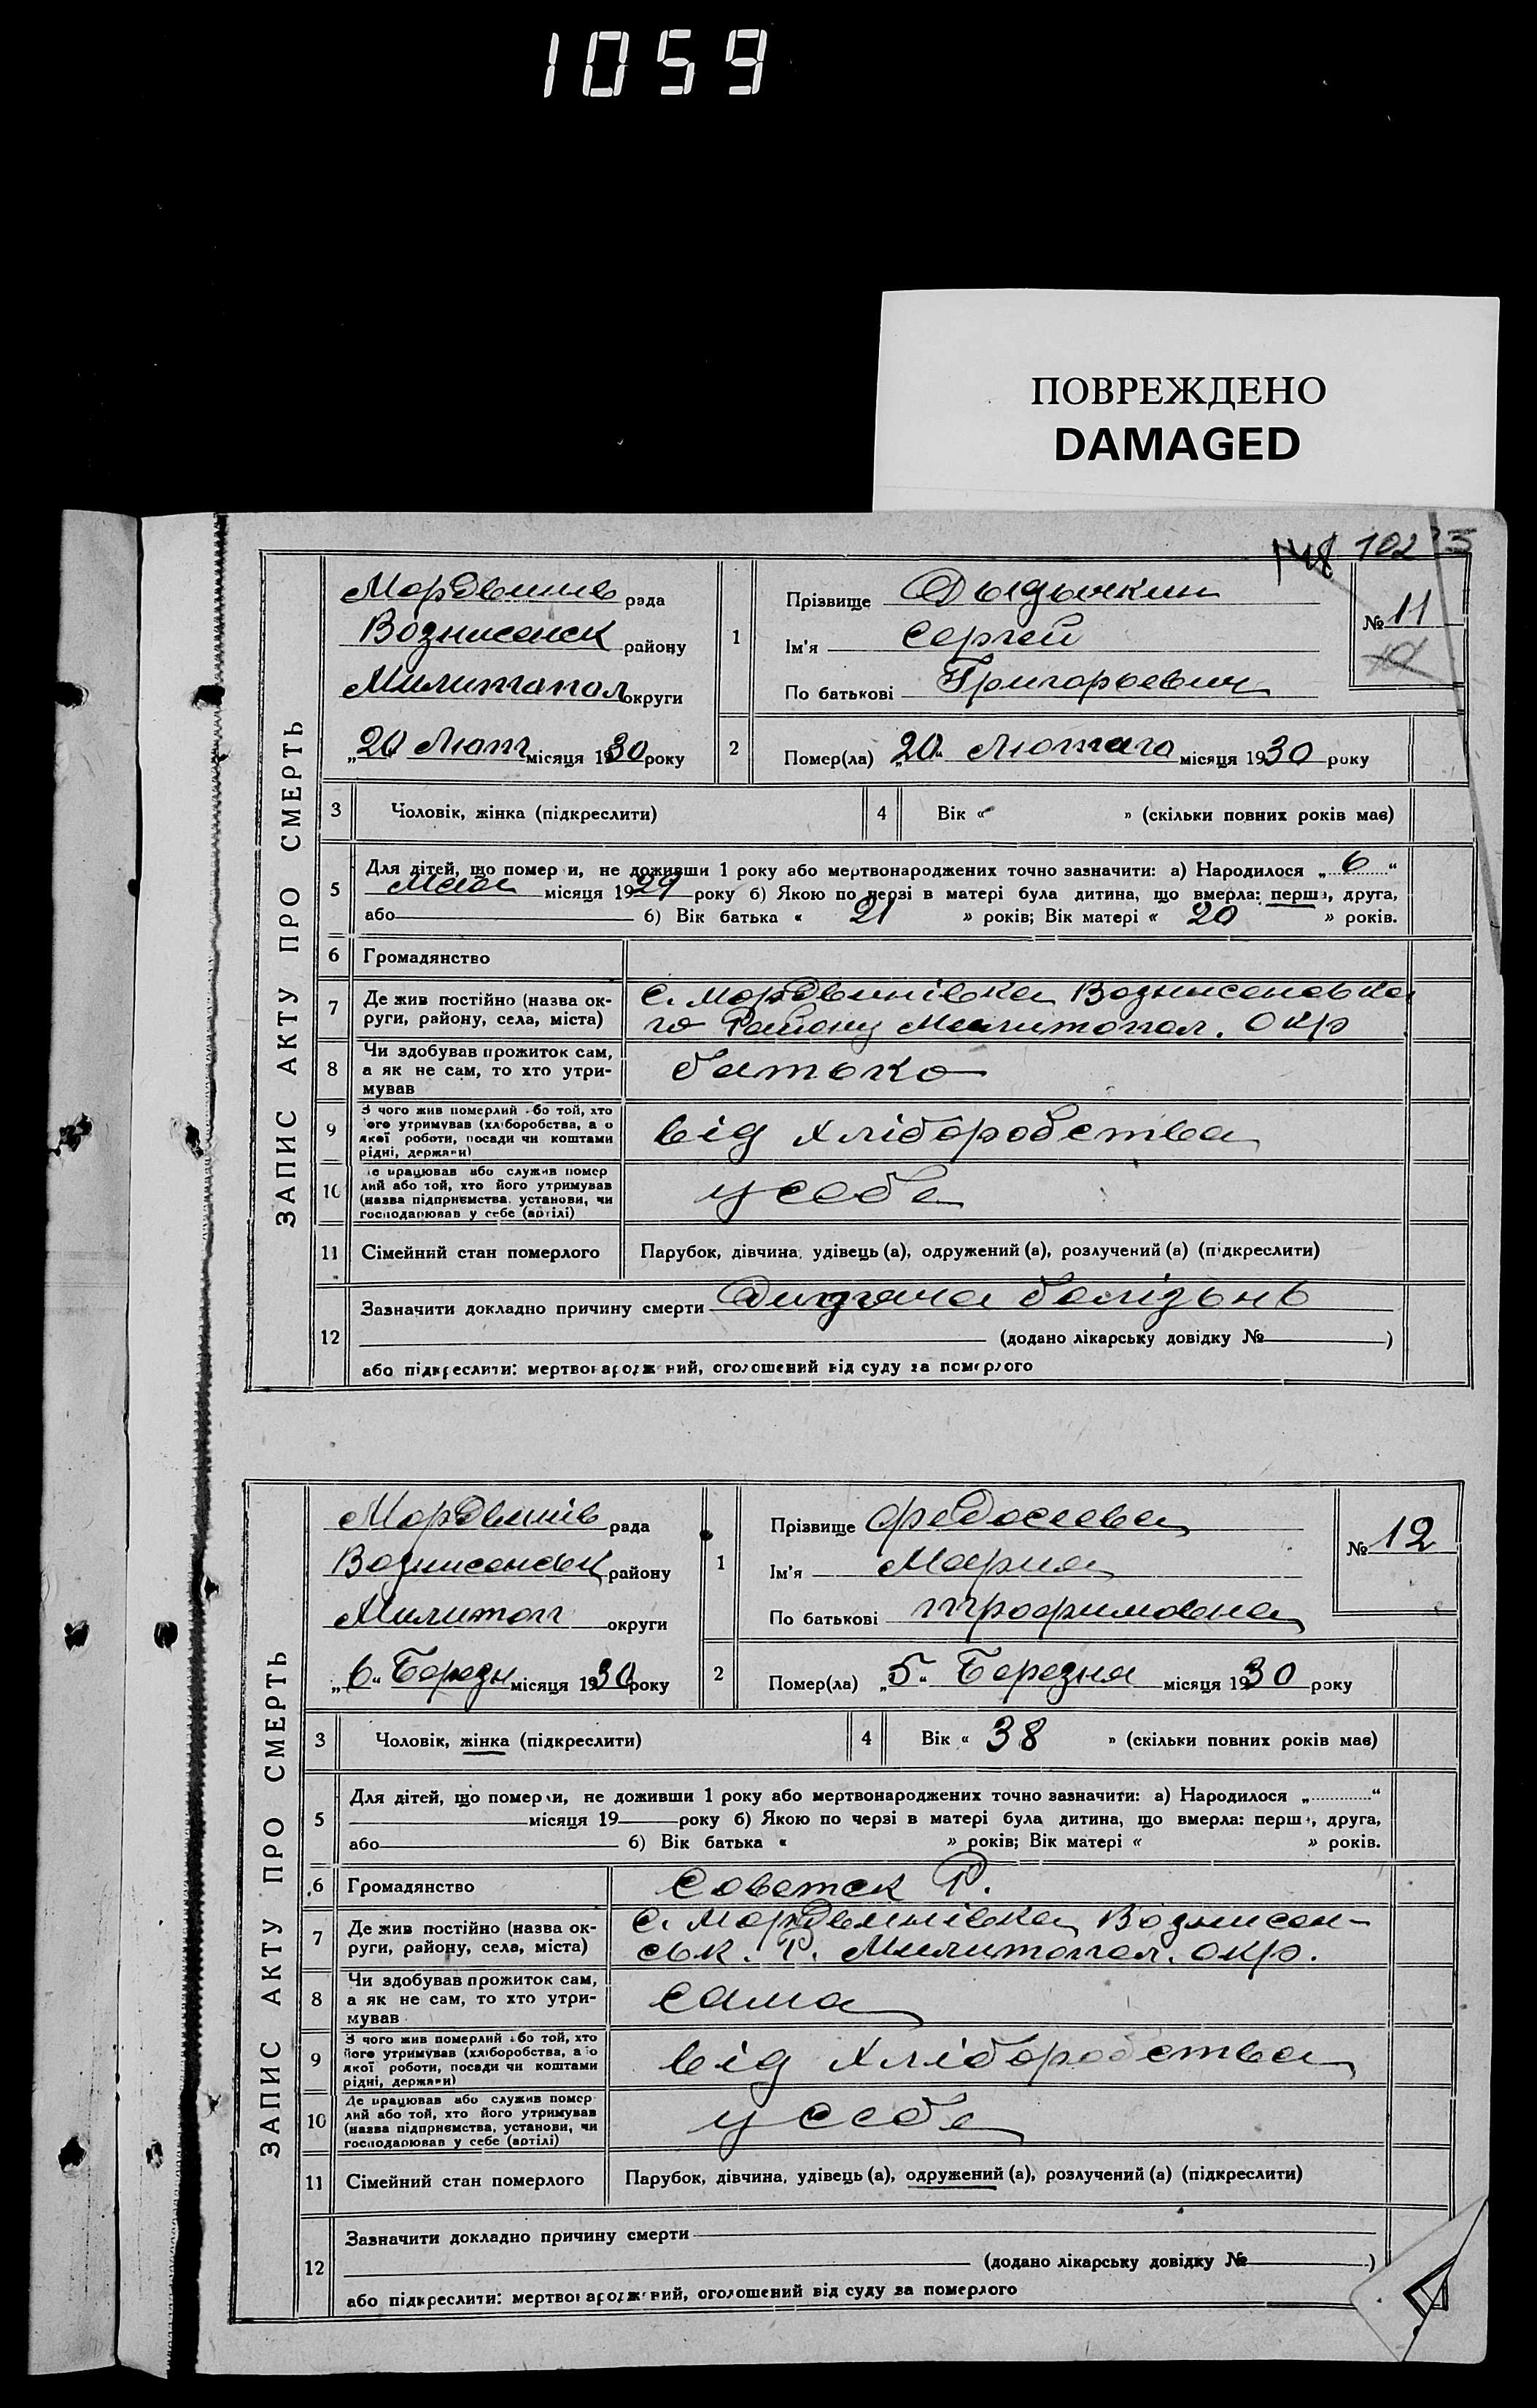 1059
ПОВРЕЖДЕНО
DAMAGED
148 102
ЗАПИС АКТУ ПРО СМЕРТЬ
Мордвинів рада
Вознисенск району
Милитапол округи
„20 Лютг місяця 1930 року
1
Прізвище Дыдычкин
Ім'я Сергей
По батькові Григорьевич
№ 11
2 Помер(ла) „20“ Лютаго місяця 1930 року
3 Чоловік, жінка (підкреслити) 4 Вік « » (скільки повних років має)
5 Для дітей, що помер и, не доживши 1 року або мертвонароджених точно зазначити: а) Народилося „ 6 “
Мая місяця 1929 року б) Якою по черзі в матері була дитина, що вмерла: перш, друга,
або 6) Вік батька « 21 » років; Вік матері « 20 » років.
6 Громадянство
7 Де жив постійно (назва ок-
руги, району, села, міста)
С. Мордвинівка Вознисеновка
го Району Милитопол. Окр
8 Чи здобував прожиток сам,
а як не сам, то хто утри-
мував
батько
9 З чого жив померлий бо той, хто
ого утримував (хліборобства, а о
якої роботи, посади чи коштами
рідні, держави)
від хліборобства
10 е працював або служив помер
лий або той, хто його утримував
(назва підприємства, установи, чи
господарював у себе (артілі)
у себе
11 Сімейний стан померлого Парубок, дівчина, удівець (а), одружений (а), розлучений (а) (підкреслити)
12 Зазначити докладно причину смерти Дитяча болізьнь
(додано лікарську довідку № )
або підкреслити: мертвонародж ний, оголошений від суду за померлого
ЗАПИС АКТУ ПРО СМЕРТЬ
Мордвинів рада
Вознисенськ району
Милитоп округи
„6“ Березн місяця 1930 року
1
Прізвище Федосеева
Ім'я Мария
По батькові Трофимовна
№ 12
2 Помер(ла) „5“ Березня місяця 1930 року
3 Чоловік, жінка (підкреслити) 4 Вік « 38 » (скільки повних років має)
5 Для дітей, що померли, не доживши 1 року або мертвонароджених точно зазначити: а) Народилося „ “
місяця 19 року б) Якою по черзі в матері була дитина, що вмерла: перш, друга,
або 6) Вік батька « » років; Вік матері « » років.
6 Громадянство Советск Р.
7 Де жив постійно (назва ок-
руги, району, села, міста)
С. Мордвинівка Вознисен-
ськ. Р. Милитопол. окр.
8 Чи здобував прожиток сам,
а як не сам, то хто утри-
мував
сама
9 З чого жив померлий бо той, хто
його утримував (хліборобства, а о
якої роботи, посади чи коштами
рідні, держави)
від хліборобства
10 Де працював або служив помер
лий або той, хто його утримував
(назва підприємства, установи, чи
господарював у себе (артілі)
у себе
11 Сімейний стан померлого Парубок, дівчина, удівець (а), одружений (а), розлучений (а) (підкреслити)
12 Зазначити докладно причину смерти
(додано лікарську довідку № )
або підкреслити: мертвонароджений, оголошений від суду за померлого